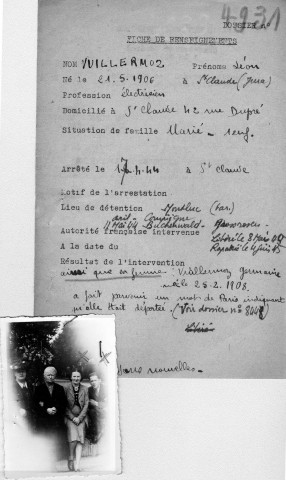 4931
DOSSIER n°
FICHE DE RENSEIGNEMENTS
NOM VUILLERMOZ Prénoms Léon
Né le 21.5.1906 à St Claude (Jura)
Profession électricien
Domicilié à St Claude 42 rue Dupré
Situation de famille Marié -
Arrêté le 7.4.44 à St Claude
Motif de l'arrestation
Lieu de détention Montluc
Compiègne
11 Mai 44 Buchenwald -
Autorité française intervenue Libéré le 8 Mai
A la date du Rapatrié le
Résultat de l'intervention
ainsi que sa femme. Vuillermoz Germaine
née le 25-2-1908.
a fait parvenir un mot de Paris indiquant
qu'elle était déportée. (Voir dossier n°
Libéré
sans nouvelles -